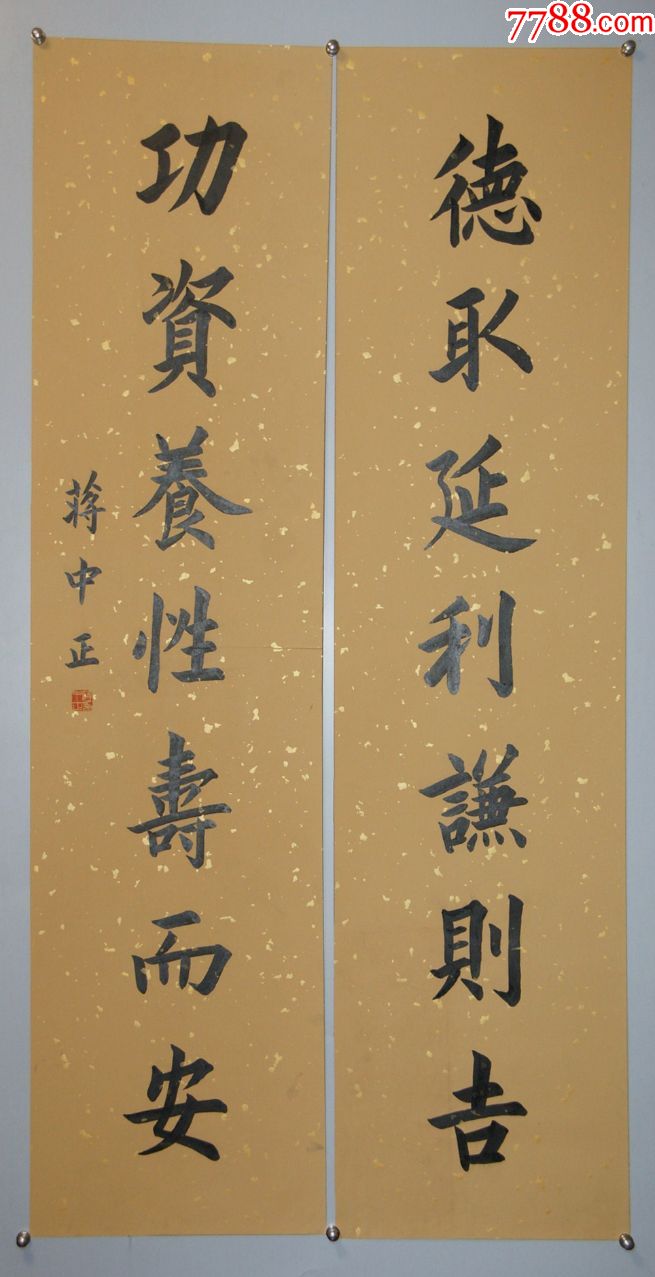 7788.com
德取延利謙則吉
功資養性壽而安
蔣中正